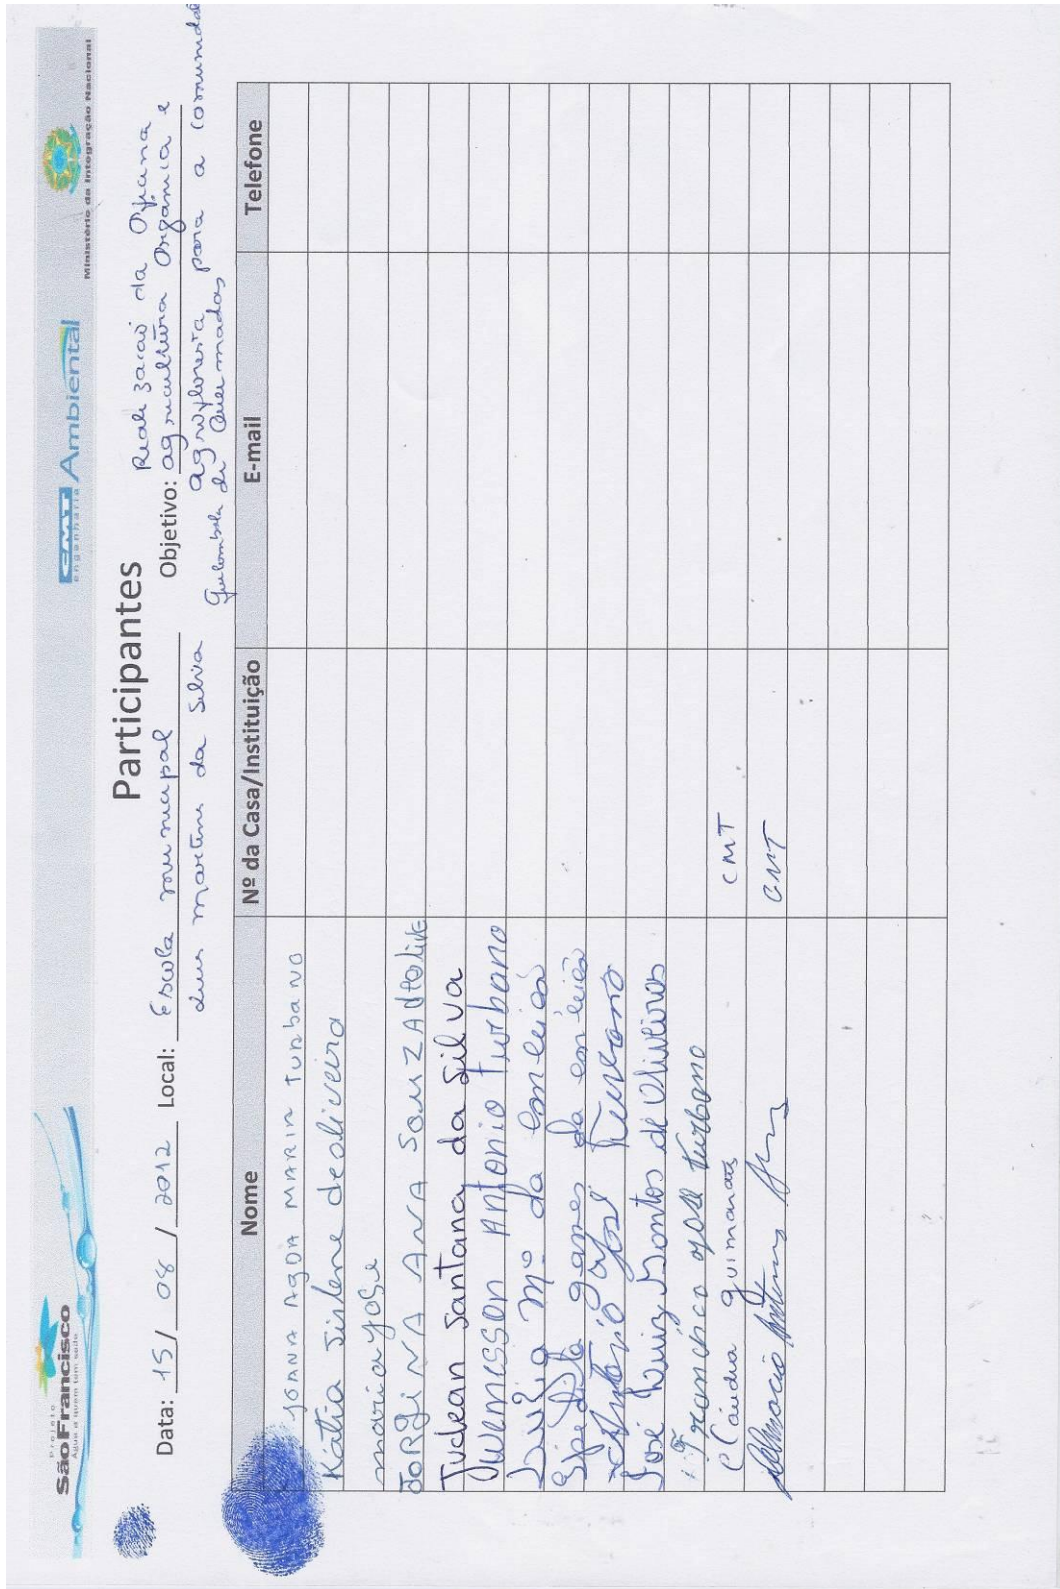 Projeto
São Francisco
Água a quem tem sede
CMT Ambiental
engenharia
Ministério da Integração Nacional
Participantes
Data: 15/ 08 / 2012 Local: Escola municipal Objetivo: Realização da Oficina
Luis martins da Silva agricultura Orgânica e
agrofloresta para a comunidad
Quilombola de Queimadas
Nome Nº da Casa/Instituição E-mail Telefone
JOANA AGDA MARIA TURBANO
Katia Sislene deoliveira
maria yose
JORginA AnA SOUZA deolive
Juclean Santana da Silva
Juvenisson Antonio Turbano
Luzia Mª da Conceição
Espedita gomes da
Antônio José Turbano
José Luiz Santos de Oliveiros
Francisco José Turbano
Claudia guimarães CMT
CMT